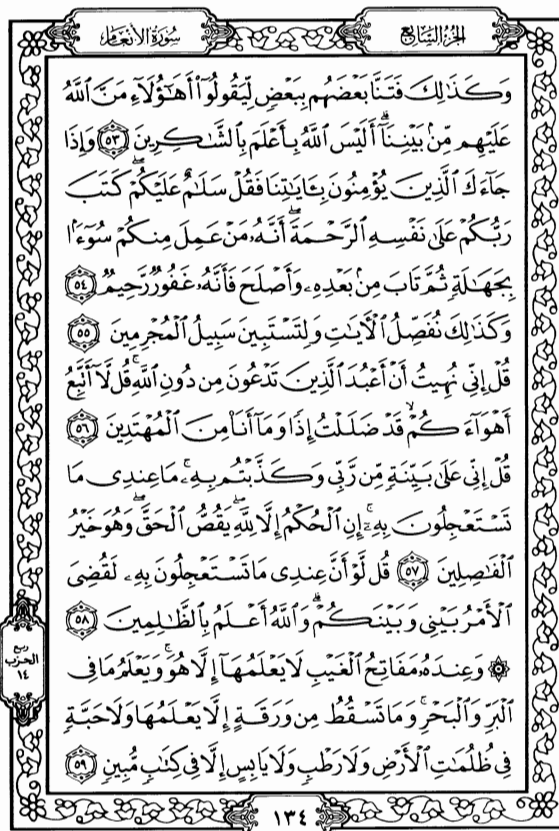 سُورَةُ الأَنْعَام
الجُزْءُ السَّابِع
وَكَذَٰلِكَ فَتَنَّا بَعْضَهُم بِبَعْضٍ لِّيَقُولُوٓا۟ أَهَٰٓؤُلَآءِ مَنَّ ٱللَّهُ
عَلَيْهِم مِّنۢ بَيْنِنَآ ۗ أَلَيْسَ ٱللَّهُ بِأَعْلَمَ بِٱلشَّٰكِرِينَ ٥٣ وَإِذَا
جَآءَكَ ٱلَّذِينَ يُؤْمِنُونَ بِـَٔايَٰتِنَا فَقُلْ سَلَٰمٌ عَلَيْكُمْ ۖ كَتَبَ
رَبُّكُمْ عَلَىٰ نَفْسِهِ ٱلرَّحْمَةَ ۖ أَنَّهُۥ مَنْ عَمِلَ مِنكُمْ سُوٓءًۢا
بِجَهَٰلَةٍ ثُمَّ تَابَ مِنۢ بَعْدِهِۦ وَأَصْلَحَ فَأَنَّهُۥ غَفُورٌ رَّحِيمٌ ٥٤
وَكَذَٰلِكَ نُفَصِّلُ ٱلْـَٔايَٰتِ وَلِتَسْتَبِينَ سَبِيلُ ٱلْمُجْرِمِينَ ٥٥
قُلْ إِنِّى نُهِيتُ أَنْ أَعْبُدَ ٱلَّذِينَ تَدْعُونَ مِن دُونِ ٱللَّهِ ۚ قُل لَّآ أَتَّبِعُ
أَهْوَآءَكُمْ ۙ قَدْ ضَلَلْتُ إِذًا وَمَآ أَنَا۠ مِنَ ٱلْمُهْتَدِينَ ٥٦
قُلْ إِنِّى عَلَىٰ بَيِّنَةٍ مِّن رَّبِّى وَكَذَّبْتُم بِهِۦ ۚ مَا عِندِى مَا
تَسْتَعْجِلُونَ بِهِۦٓ ۚ إِنِ ٱلْحُكْمُ إِلَّا لِلَّهِ ۖ يَقُصُّ ٱلْحَقَّ ۖ وَهُوَ خَيْرُ
ٱلْفَٰصِلِينَ ٥٧ قُل لَّوْ أَنَّ عِندِى مَا تَسْتَعْجِلُونَ بِهِۦ لَقُضِىَ
ٱلْأَمْرُ بَيْنِى وَبَيْنَكُمْ ۗ وَٱللَّهُ أَعْلَمُ بِٱلظَّٰلِمِينَ ٥٨
۞ وَعِندَهُۥ مَفَاتِحُ ٱلْغَيْبِ لَا يَعْلَمُهَآ إِلَّا هُوَ ۚ وَيَعْلَمُ مَا فِى
ٱلْبَرِّ وَٱلْبَحْرِ ۚ وَمَا تَسْقُطُ مِن وَرَقَةٍ إِلَّا يَعْلَمُهَا وَلَا حَبَّةٍ
فِى ظُلُمَٰتِ ٱلْأَرْضِ وَلَا رَطْبٍ وَلَا يَابِسٍ إِلَّا فِى كِتَٰبٍ مُّبِينٍ ٥٩
ربع
الحزب
١٤
١٣٤